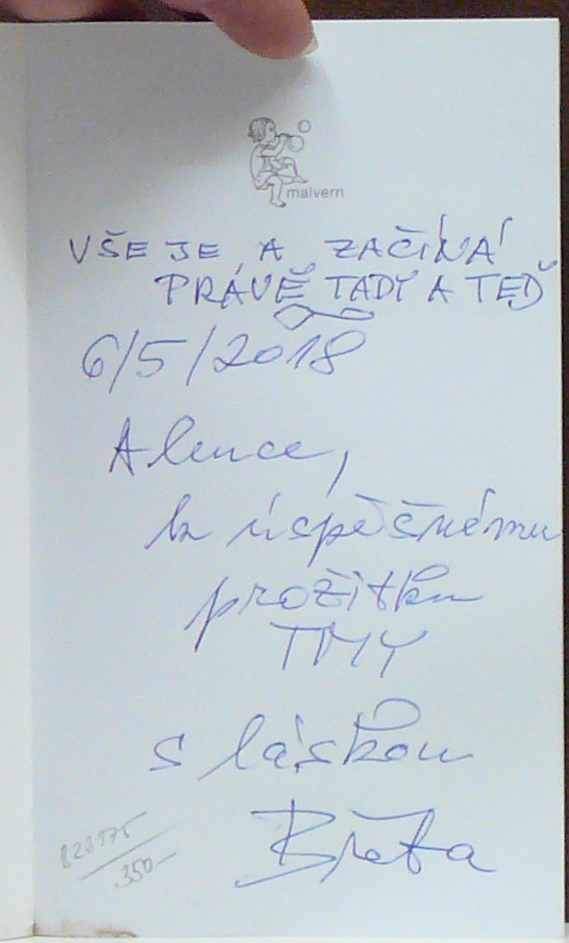 malvern
VŠE JE A ZAČÍNÁ
PRÁVĚ TADY A TEĎ
6/5/2018
Alence,
k úspěšnému
prožitku
TMY
s láskou
Břeťa
350